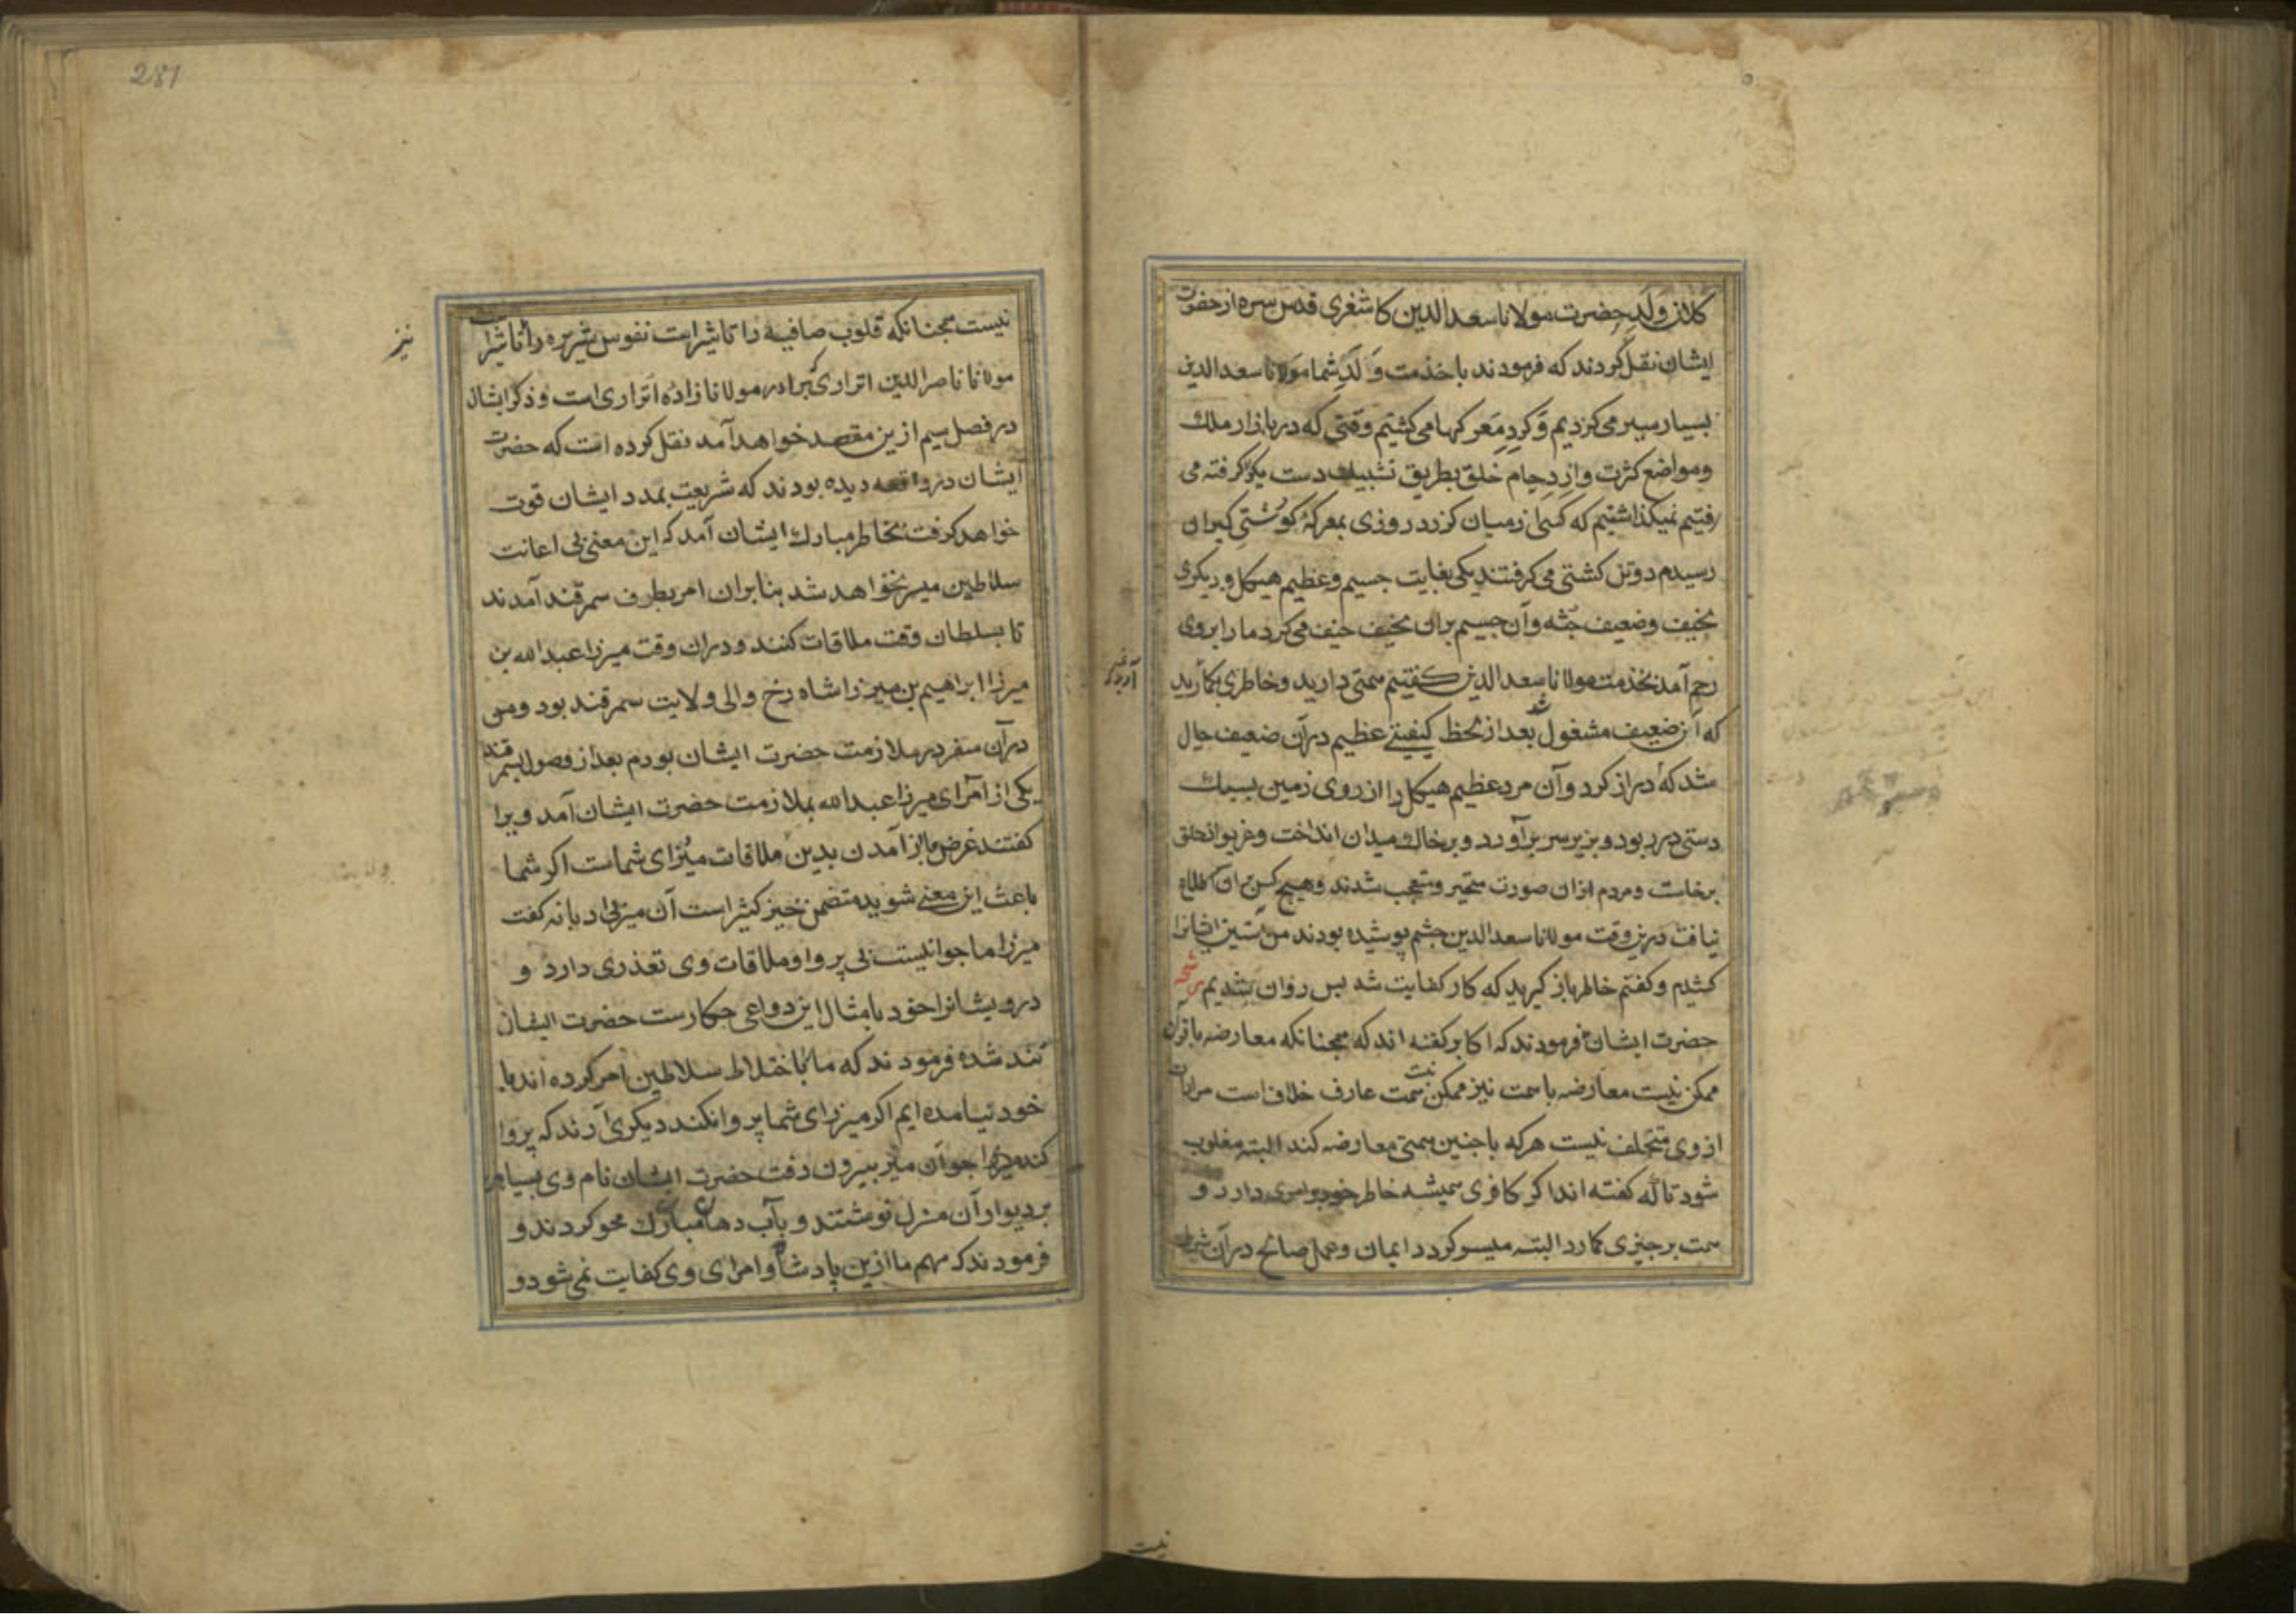 کلان ولد حضرت مولانا سعد الدین کاشغری قدس سره از حضرت
ایشان نقل کردند که فرمودند با خذمت ولد شما مولانا سعد الدین
بسیار سیر می کردیم و کرد معرکها می کشتیم وقتی که در بازار ملک
ومواضع کثرت وازدحام خلق بطریق تشبیک دست یکدکر کرفته می
رفتیم نمیکذاشتیم که کسی از میان کزرد روزی بمعرکهٔ کوشتی کیران
رسیدم دو تن کشتی می کرفتند یکی بغایت جسیم وعظیم هیکل و دیکری
نحیف وضعیف جثه وآن جسیم بران نحیف حیف می کرد ما را بر وی
رحم آمد بخذمت مولانا سعد الدین کفتیم همتی دارید وخاطری بکمارید
که آن ضعیف مشغول شد بعد از لحظه کیفیتی عظیم در آن ضعیف حال
شد که دست دراز کرد وآن مرد عظیم هیکل را از روی زمین بسبک
دستی در ربود و بزبر سر برآورد و بر خاک میدان انداخت وغریو از خلق
برخاست ومردم ازان صورت متحیر ومتعجب شدند وهیچ کس بران اطلاع
نیافت درین وقت مولانا سعد الدین چشم پوشیده بودند من آستین ایشانرا
کشیدم وکفتم خاطر باز کیرید که کار کفایت شد پس روان شدیم رشحه
حضرت ایشان فرمودند که اکابر کفته اند که همچنانکه معارضه با قرآن
ممکن نیست معارضه با همت نیز ممکن نیست همت عارف خلاق است مرادات
از وی متخلف نیست هرکه با چنین همتی معارضه کند البته مغلوب
شود تا که کفته اند اکر کافری همیشه خاطر خود بر امری دارد و
همت بر چیزی کمارد البته میسر کردد ایمان وعمل صالح در آن شرط
نیست
281
نیست همچنانکه قلوب صافیه را تاثیر است نفوس شریره را تاثیر است
نیز
مولانا ناصر الدین اتراری که برادر مولانا زاده اتراری است وذکر ایشان
در فصل سیم ازین مقصد خواهد آمد نقل کرده است که حضرت
ایشان در واقعه دیده بودند که شریعت بمدد ایشان قوت
خواهد کرفت بخاطر مبارک ایشان آمد که این معنی بی اعانت
سلاطین میسر نخواهد شد بنابران امر بطرف سمرقند آمدند
تا بسلطان وقت ملاقات کنند ودران وقت میرزا عبدالله بن
میرزا ابراهیم بن میرزا شاه رخ والی ولایت سمرقند بود ومن
در آن سفر در ملازمت حضرت ایشان بودم بعد از وصول بسمرقند
یکی از امرای میرزا عبدالله بملازمت حضرت ایشان آمد ویرا
کفتند غرض ما از آمدن بدین ملاقات میرزای شماست اکر شما
باعث این معنی شوید متضمن خیر کثیر است آن میر بی ادبانه کفت
میرزا ما جوانیست بی پروا وملاقات وی تعذری دارد و
درویشانرا خود با مثال این دواعی چکارست حضرت ایشان
تند شده فرمودند که ما را باختلاط سلاطین امر کرده اند ما
خود نیامده ایم اکر میرزای شما پروا نکند دیکری آرند که پروا
کند چون آن میر بیرون رفت حضرت ایشان نام وی بسیاهی
بر دیوار آن منزل نوشتند و بآب دهان مبارک محو کردند و
فرمودند که مهم ما ازین پادشاه وامرای وی کفایت نمی شود و